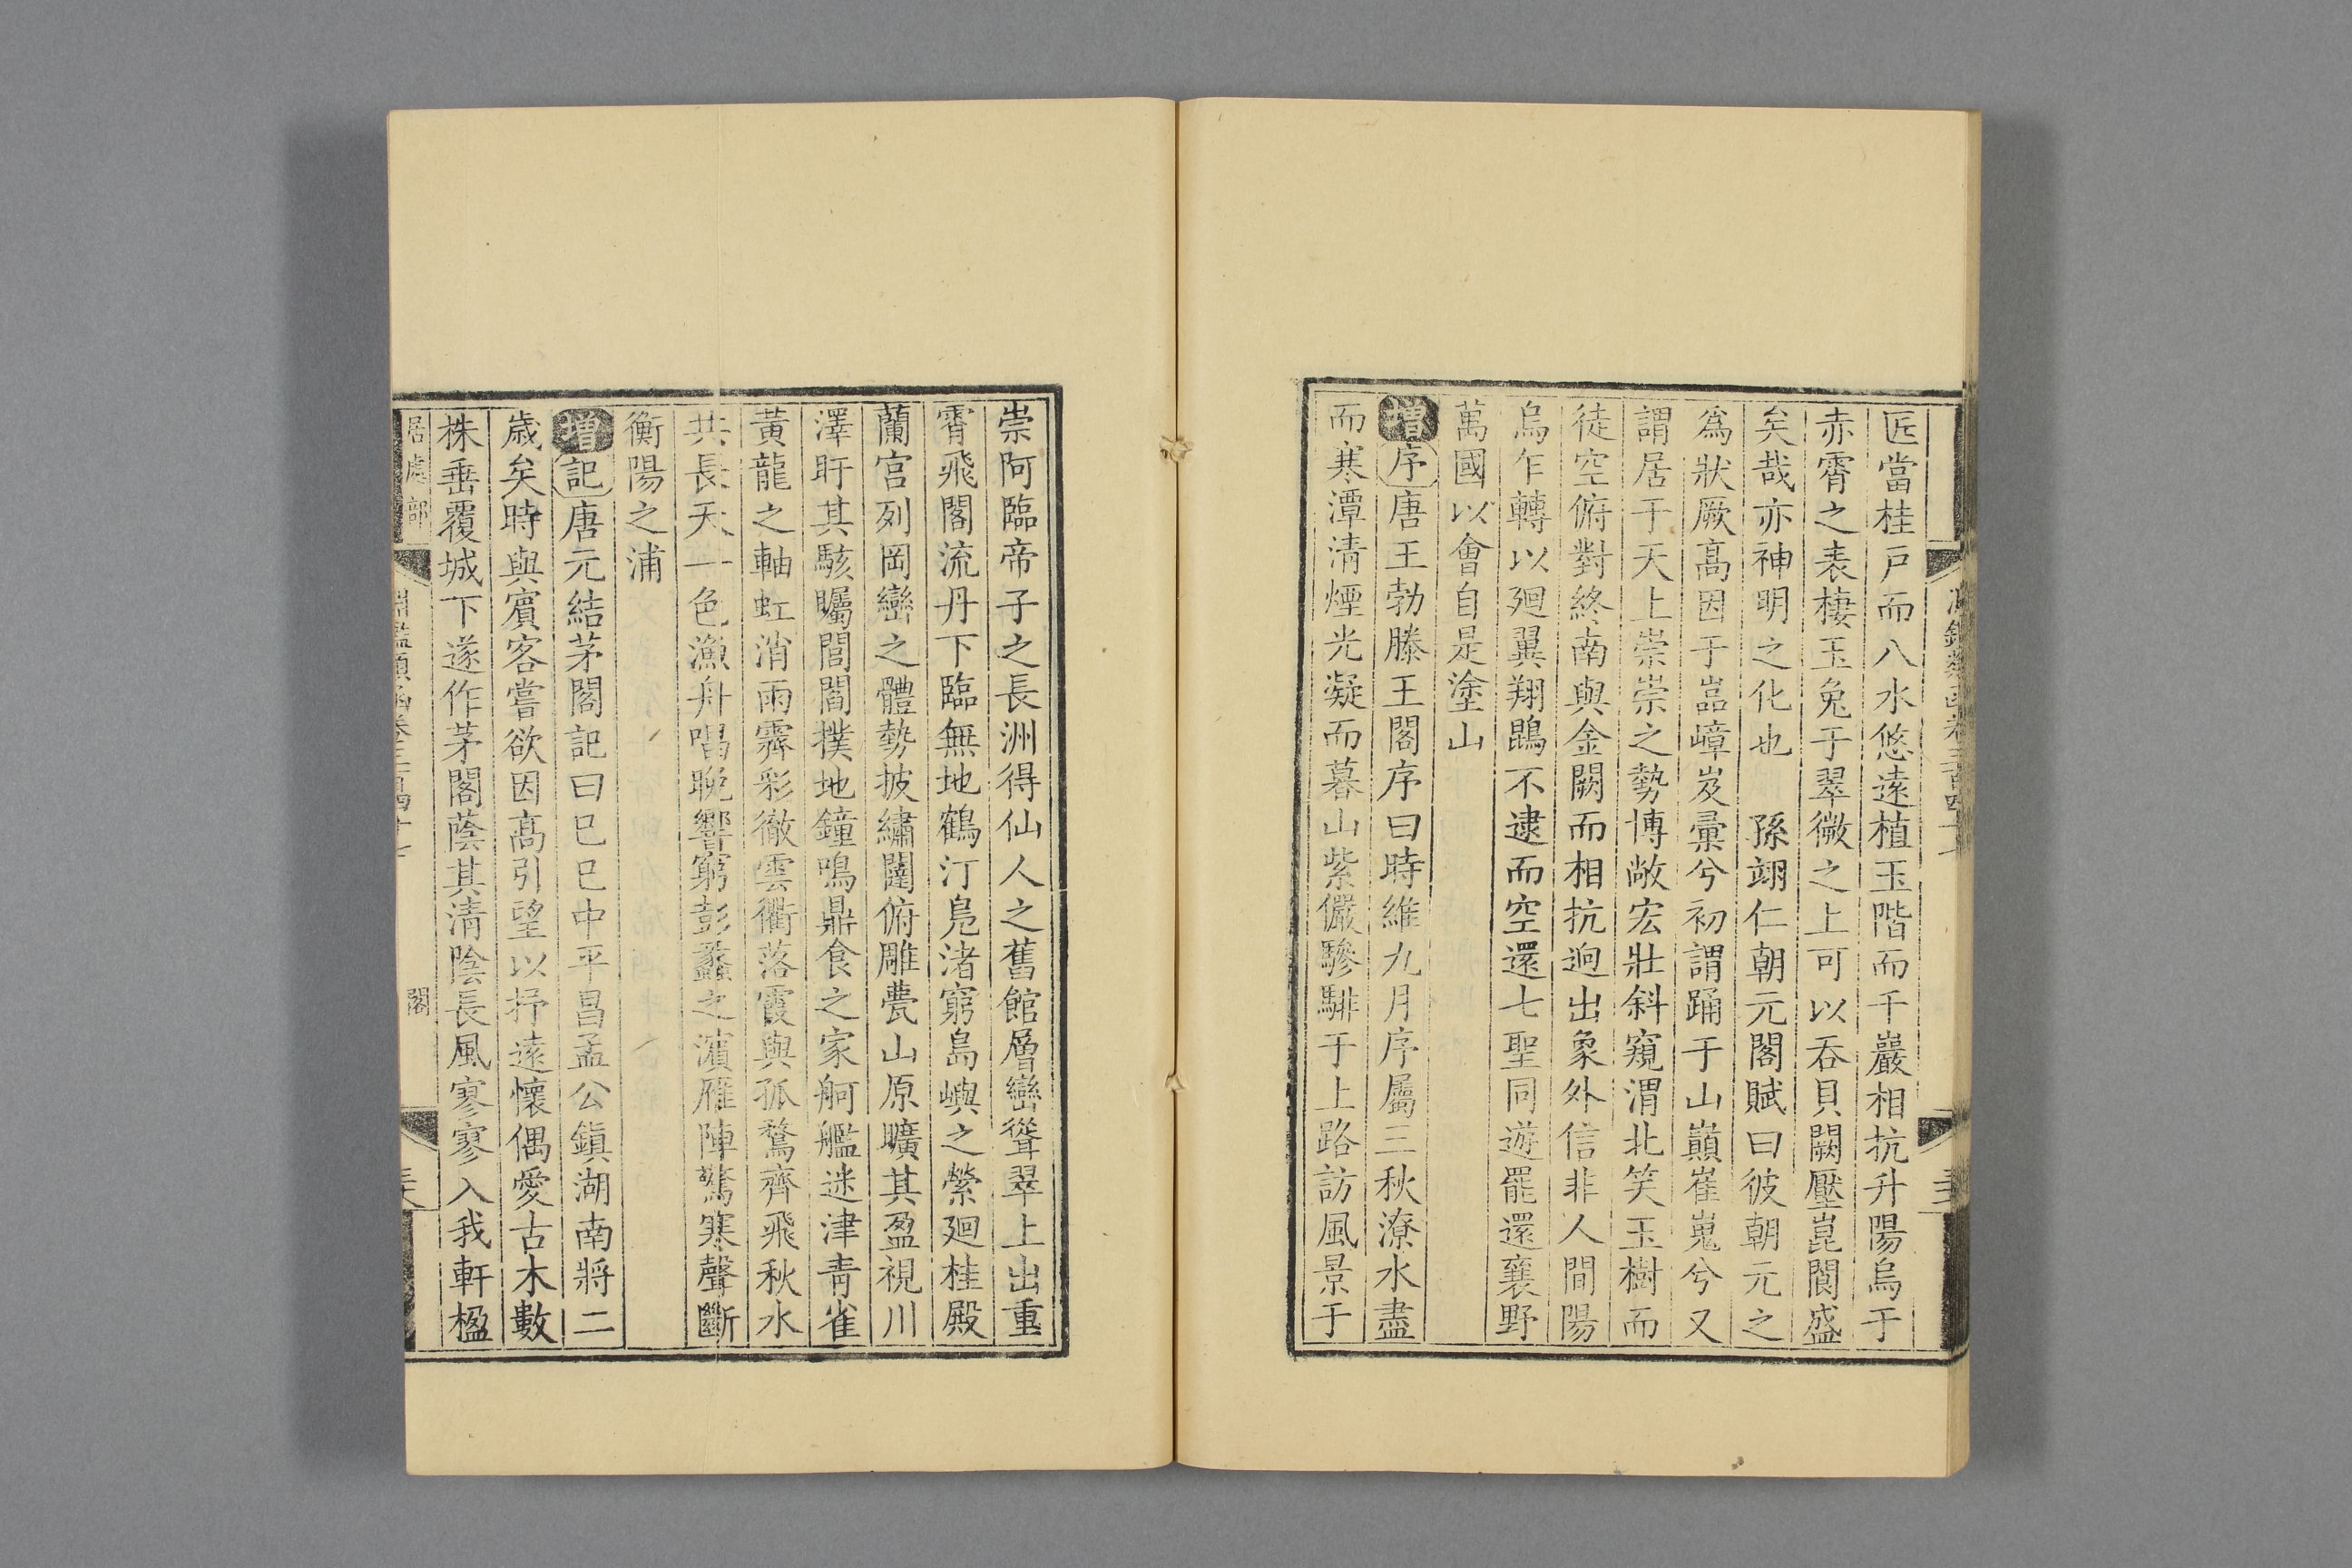 匠當桂戸而八水悠遠植玉階而千巖相抗升陽烏于
赤霄之表棲玉兔于翠微之上可以吞貝闕壓崑閬盛
矣哉亦神明之化也　孫翃仁朝元閣賦曰彼朝元之
爲狀厥髙因于嵓嶂岌㬥兮初謂踊于山巔崔嵬兮又
謂居于天上崇崇之勢博敞宏壯斜窺渭北笑玉樹而
徒空俯對終南與金闕而相抗逈出象外信非人間陽
烏乍轉以廻翼翔鵾不逮而空還七聖同遊罷還襄野
萬國以會自是塗山
增序唐王勃滕王閣序曰時維九月序屬三秋潦水盡
而寒潭清煙光凝而暮山紫儼驂騑于上路訪風景于
崇阿臨帝子之長洲得仙人之舊館層巒聳翠上出重
霄飛閣流丹下臨無地鶴汀凫渚窮島嶼之縈廻桂殿
蘭宫列岡巒之體勢披繡闥俯雕甍山原曠其盈視川
澤盱其駭矚閭閻撲地鐘鳴鼎食之家舸艦迷津青雀
黄龍之軸虹消雨霽彩徹雲衢落霞與孤鶩齊飛秋水
共長天一色漁舟唱晚響窮彭蠡之濵雁陣驚寒聲斷
衡陽之浦
增記唐元結茅閣記曰巳巳中平昌孟公鎮湖南將二
歳矣時與賓客嘗欲因髙引望以抒遠懷偶愛古木數
株垂覆城下遂作茅閣蔭其清陰長風寥寥入我軒楹
居處部　淵鑑類函卷三百四十七　閣　三六